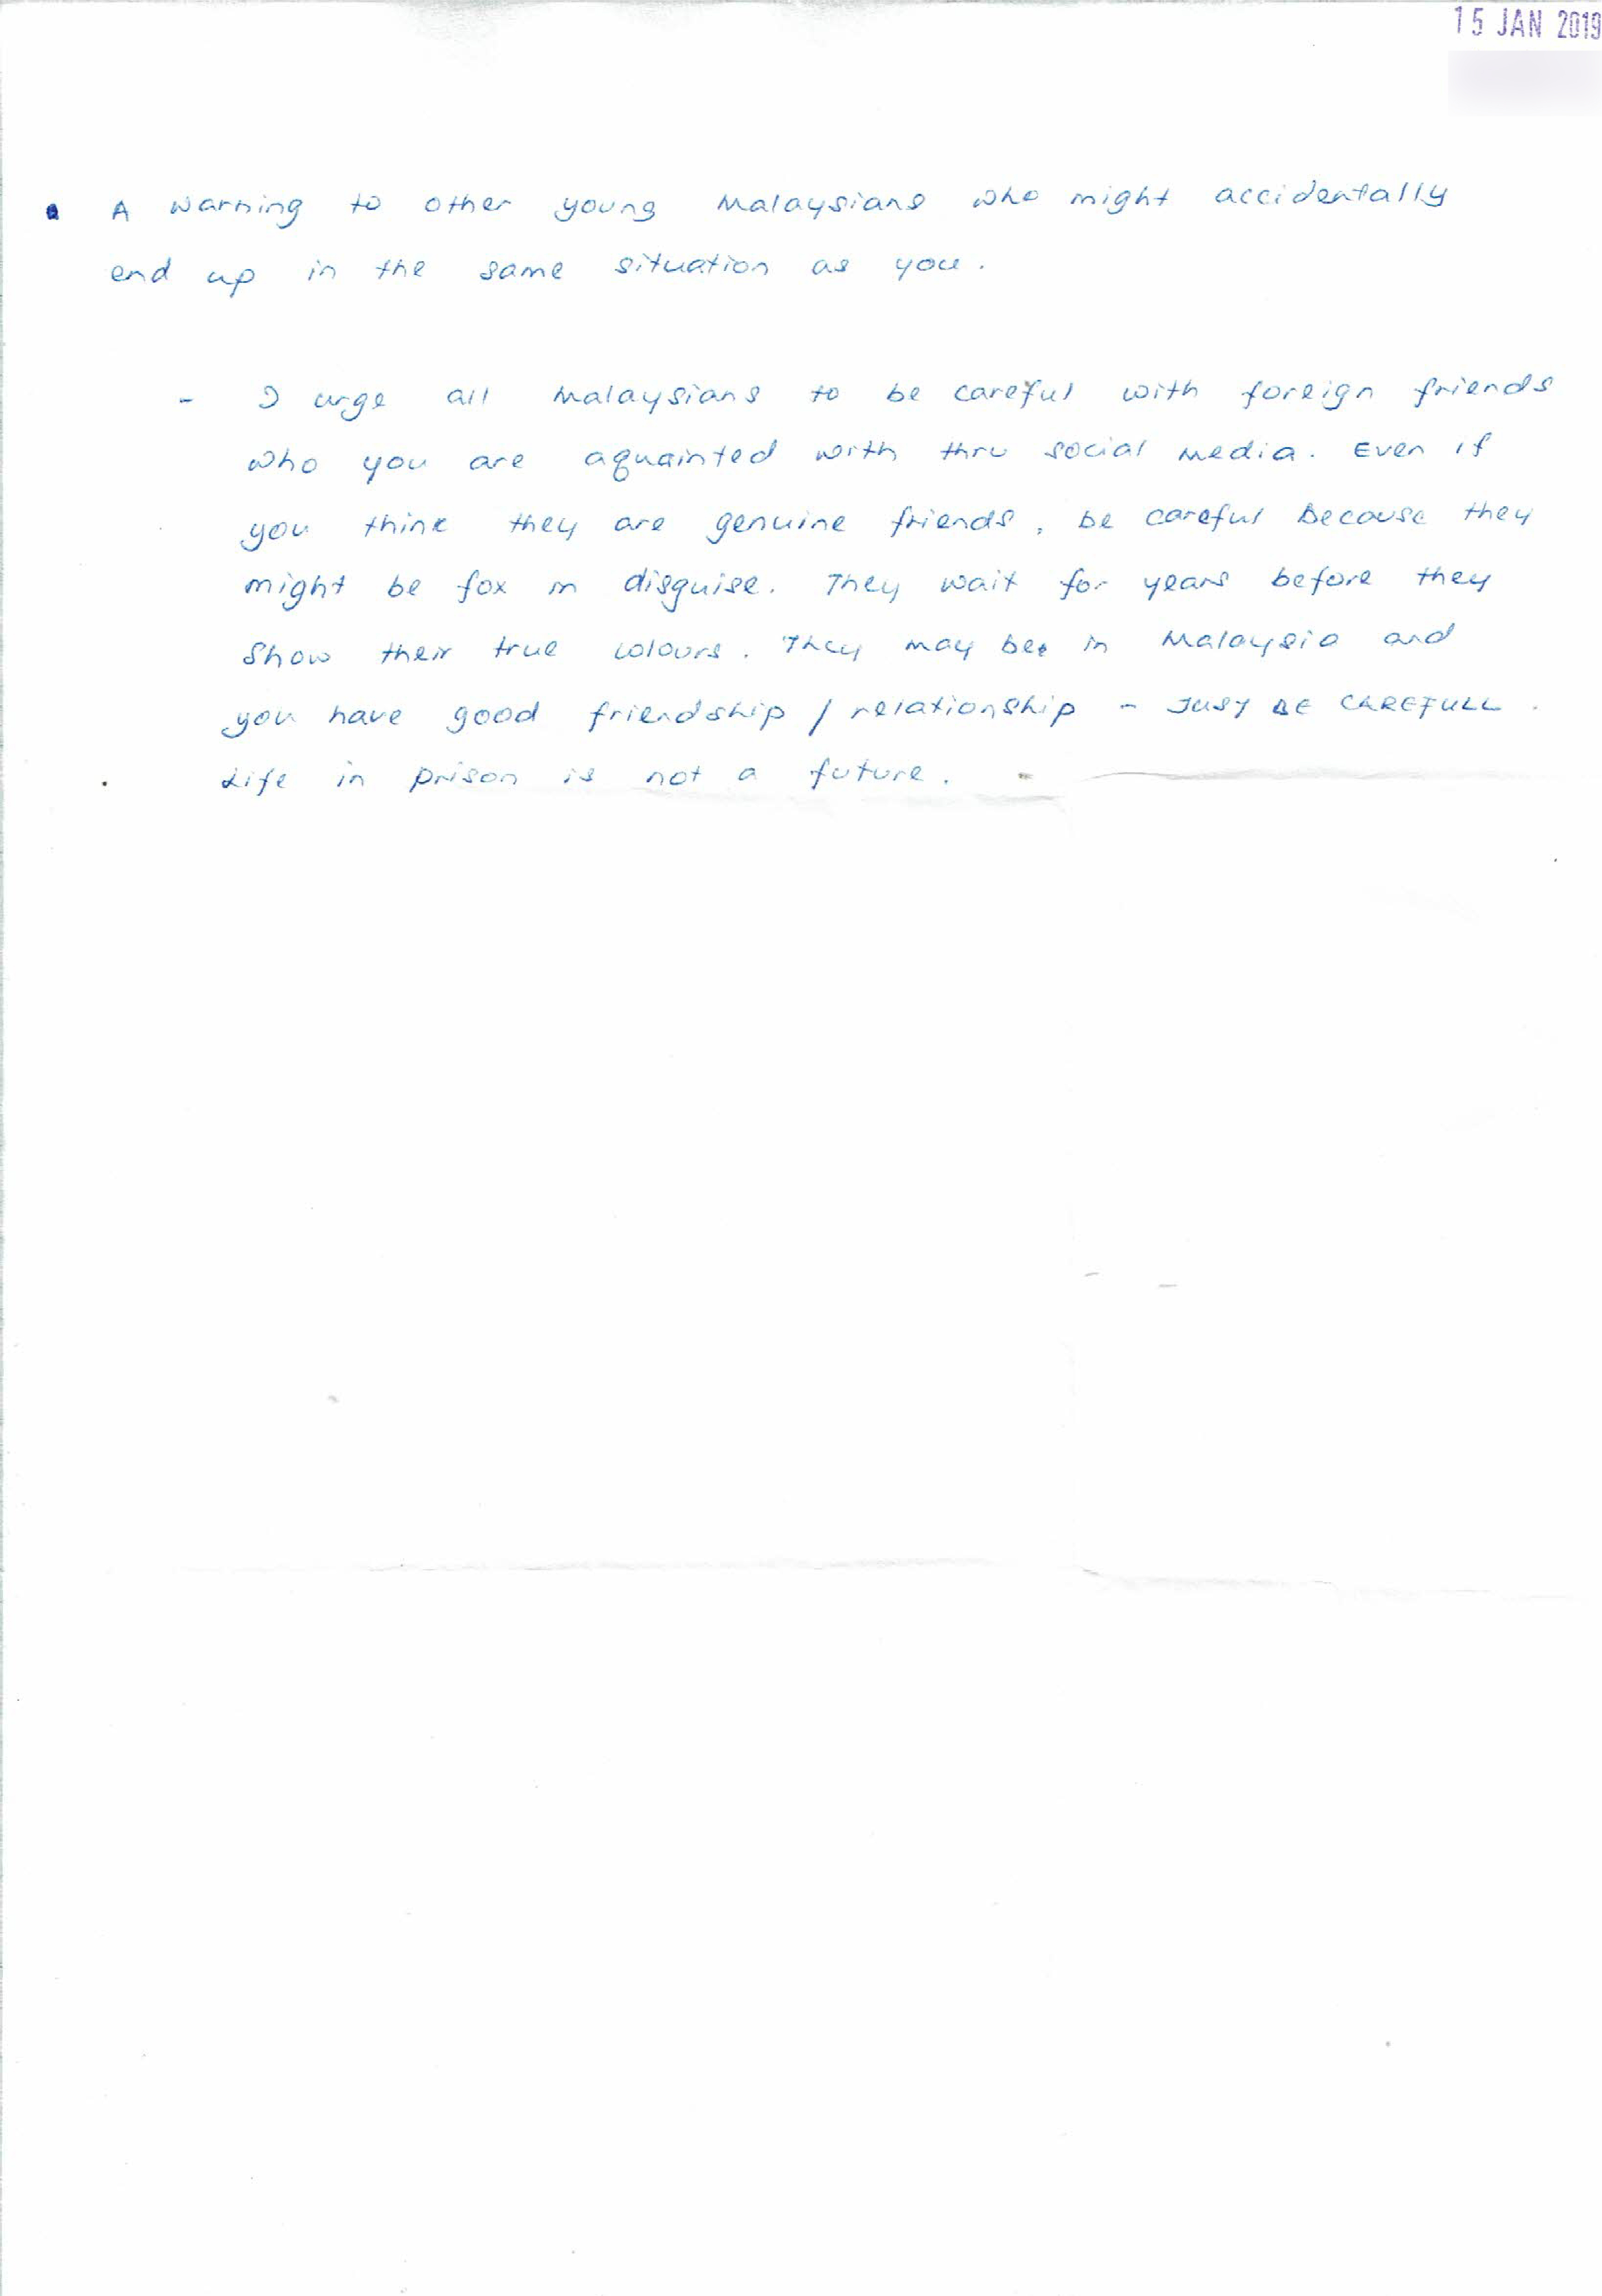 15 JAN 2019
A warning to other young Malaysians who might accidentally
end up in the same situation as you.
- I urge all Malaysians to be careful with foreign friends
who you are aquainted with thru social media. Even if
you think they are genuine friends, be careful because they
might be fox in disguise. They wait for years before they
show their true colours. They may be in Malaysia and
you have good friendship / relationship - JUST BE CAREFULL.
Life in prison is not a future.